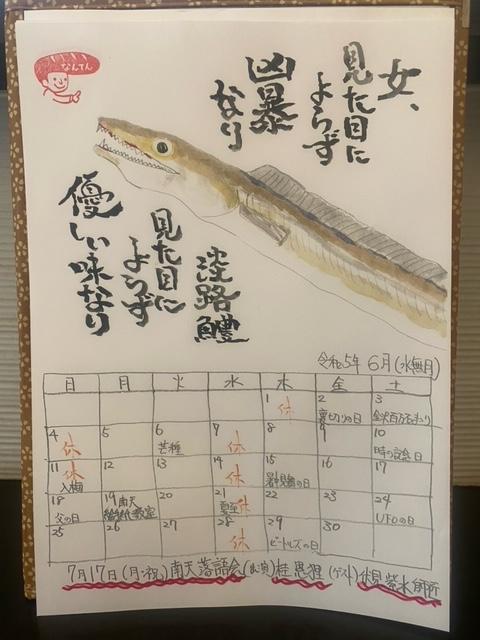 なんてん
女、
見た目に
よらず
凶暴
なり
淡路鱧
見た目に
よらず
優しい味なり
令和5年 6月(水無月)
日 月 火 水 木 金 土
1 休 2 裏切りの日 3 金沢百万石まつり
4 休 5 6 芒種 7 休 8 9 10 時の記念日
11 休 入梅 12 13 14 休 15 暑中見舞の日 16 17
18 父の日 19 南天 絵手紙教室 20 21 夏至 休 22 23 24 UFOの日
25 26 27 28 休 29 ビートルズの日 30
7月17日(月・祝)南天落語会(出演)桂 恩狸(ゲスト)伏見紫水師匠